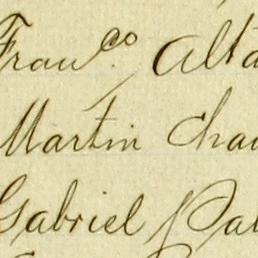 Franco Alta
Martin Cha
Gabriel Pal